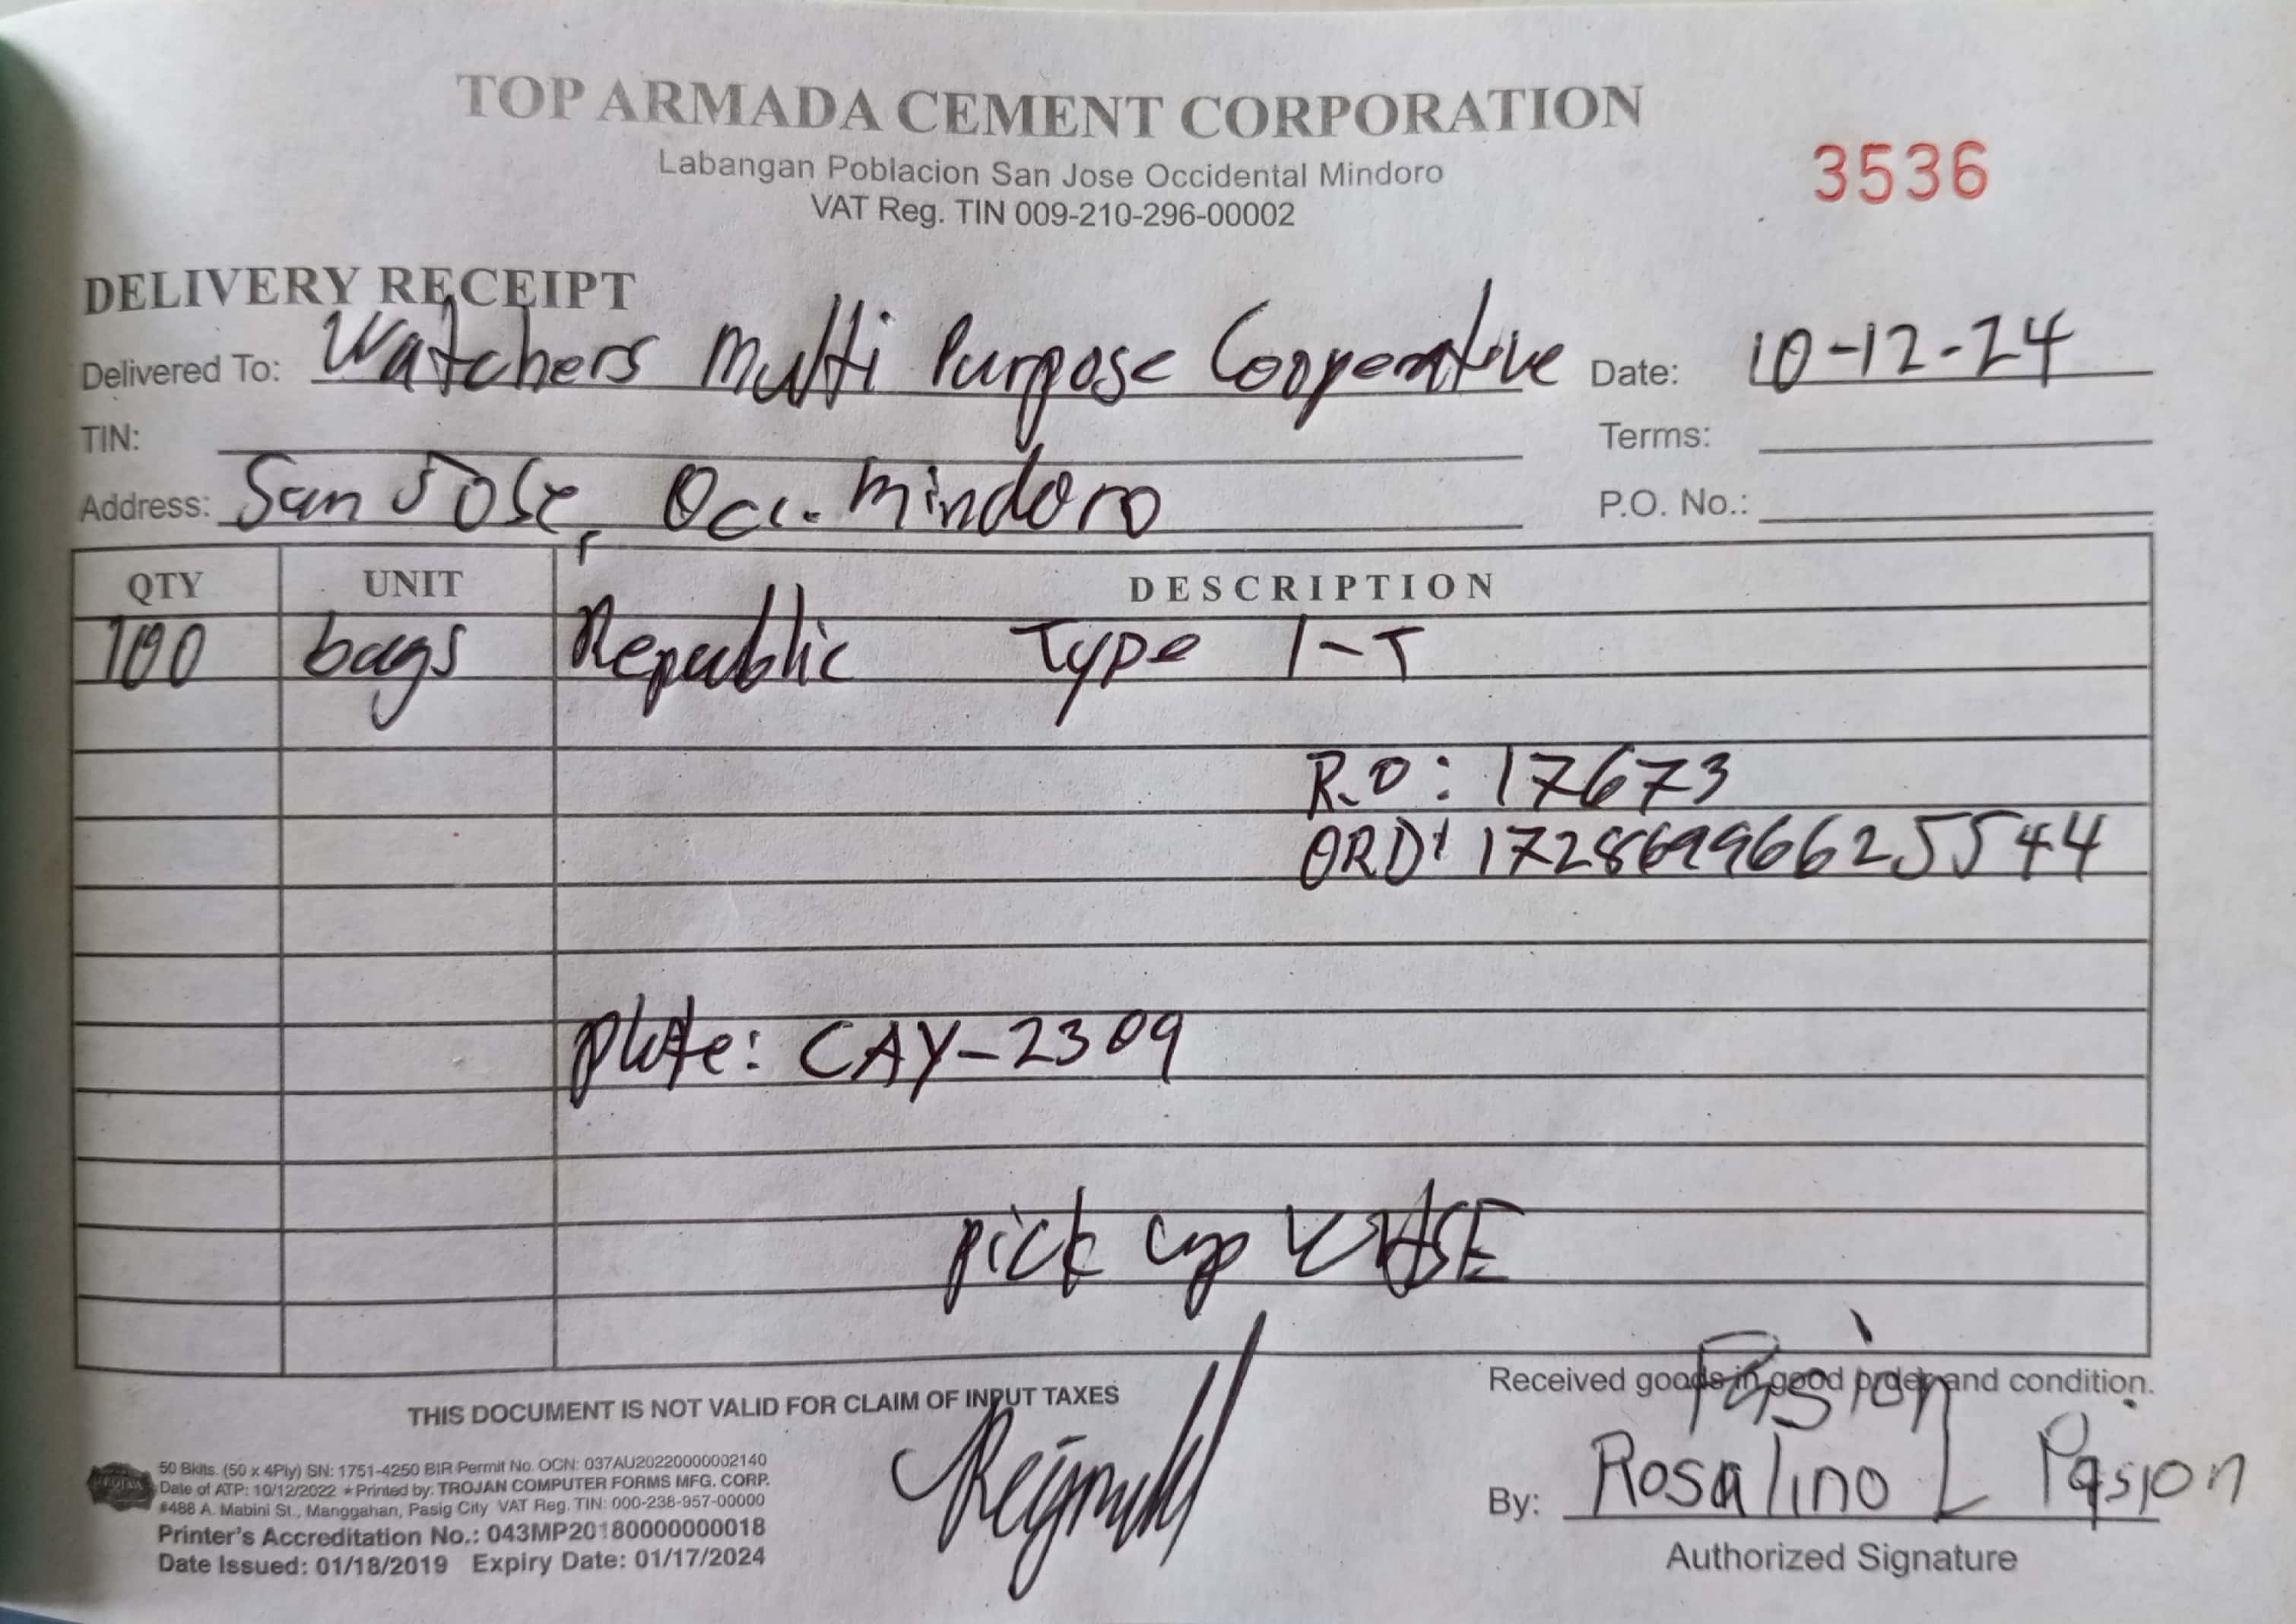 TOP ARMADA CEMENT CORPORATION
Labangan Poblacion San Jose Occidental Mindoro
VAT Reg. TIN 009-210-296-00002
3536
DELIVERY RECEIPT
Delivered To: Watchers Multi Purpose Cooperative Date: 10-12-24
TIN: Terms:
Address: San Jose, Occ. Mindoro P.O. No.:
QTY UNIT DESCRIPTION
100 bags Republic Type 1-T
R.O: 17673
ORD: 17286996625544
plate: CAY-2309
pick up WHSE
THIS DOCUMENT IS NOT VALID FOR CLAIM OF INPUT TAXES
Received goods in good order and condition.
Pasion
50 Bklts. (50 x 4Ply) SN: 1751-4250 BIR Permit No. OCN: 037AU20220000002140
Date of ATP: 10/12/2022 ★ Printed by: TROJAN COMPUTER FORMS MFG. CORP.
#488 A. Mabini St., Manggahan, Pasig City VAT Reg. TIN: 000-238-957-00000
Printer's Accreditation No.: 043MP20180000000018
Date Issued: 01/18/2019 Expiry Date: 01/17/2024
By: Rosalino L Pasion
Authorized Signature